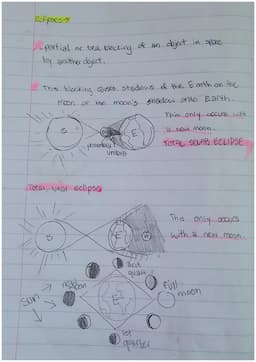 Eclipses →
partial or total blocking of an object in space
by another object.
This blocking causes shadows of the Earth on the
moon or the moon's shadow onto Earth.
This only occurs with
a new moon.
TOTAL SOLAR ECLIPSE
S
E
penumbra
umbra
Total lunar eclipse
This only occurs
with a new moon.
S
E
M
first
quarter
full
moon
new moon
SUN
E
quarter